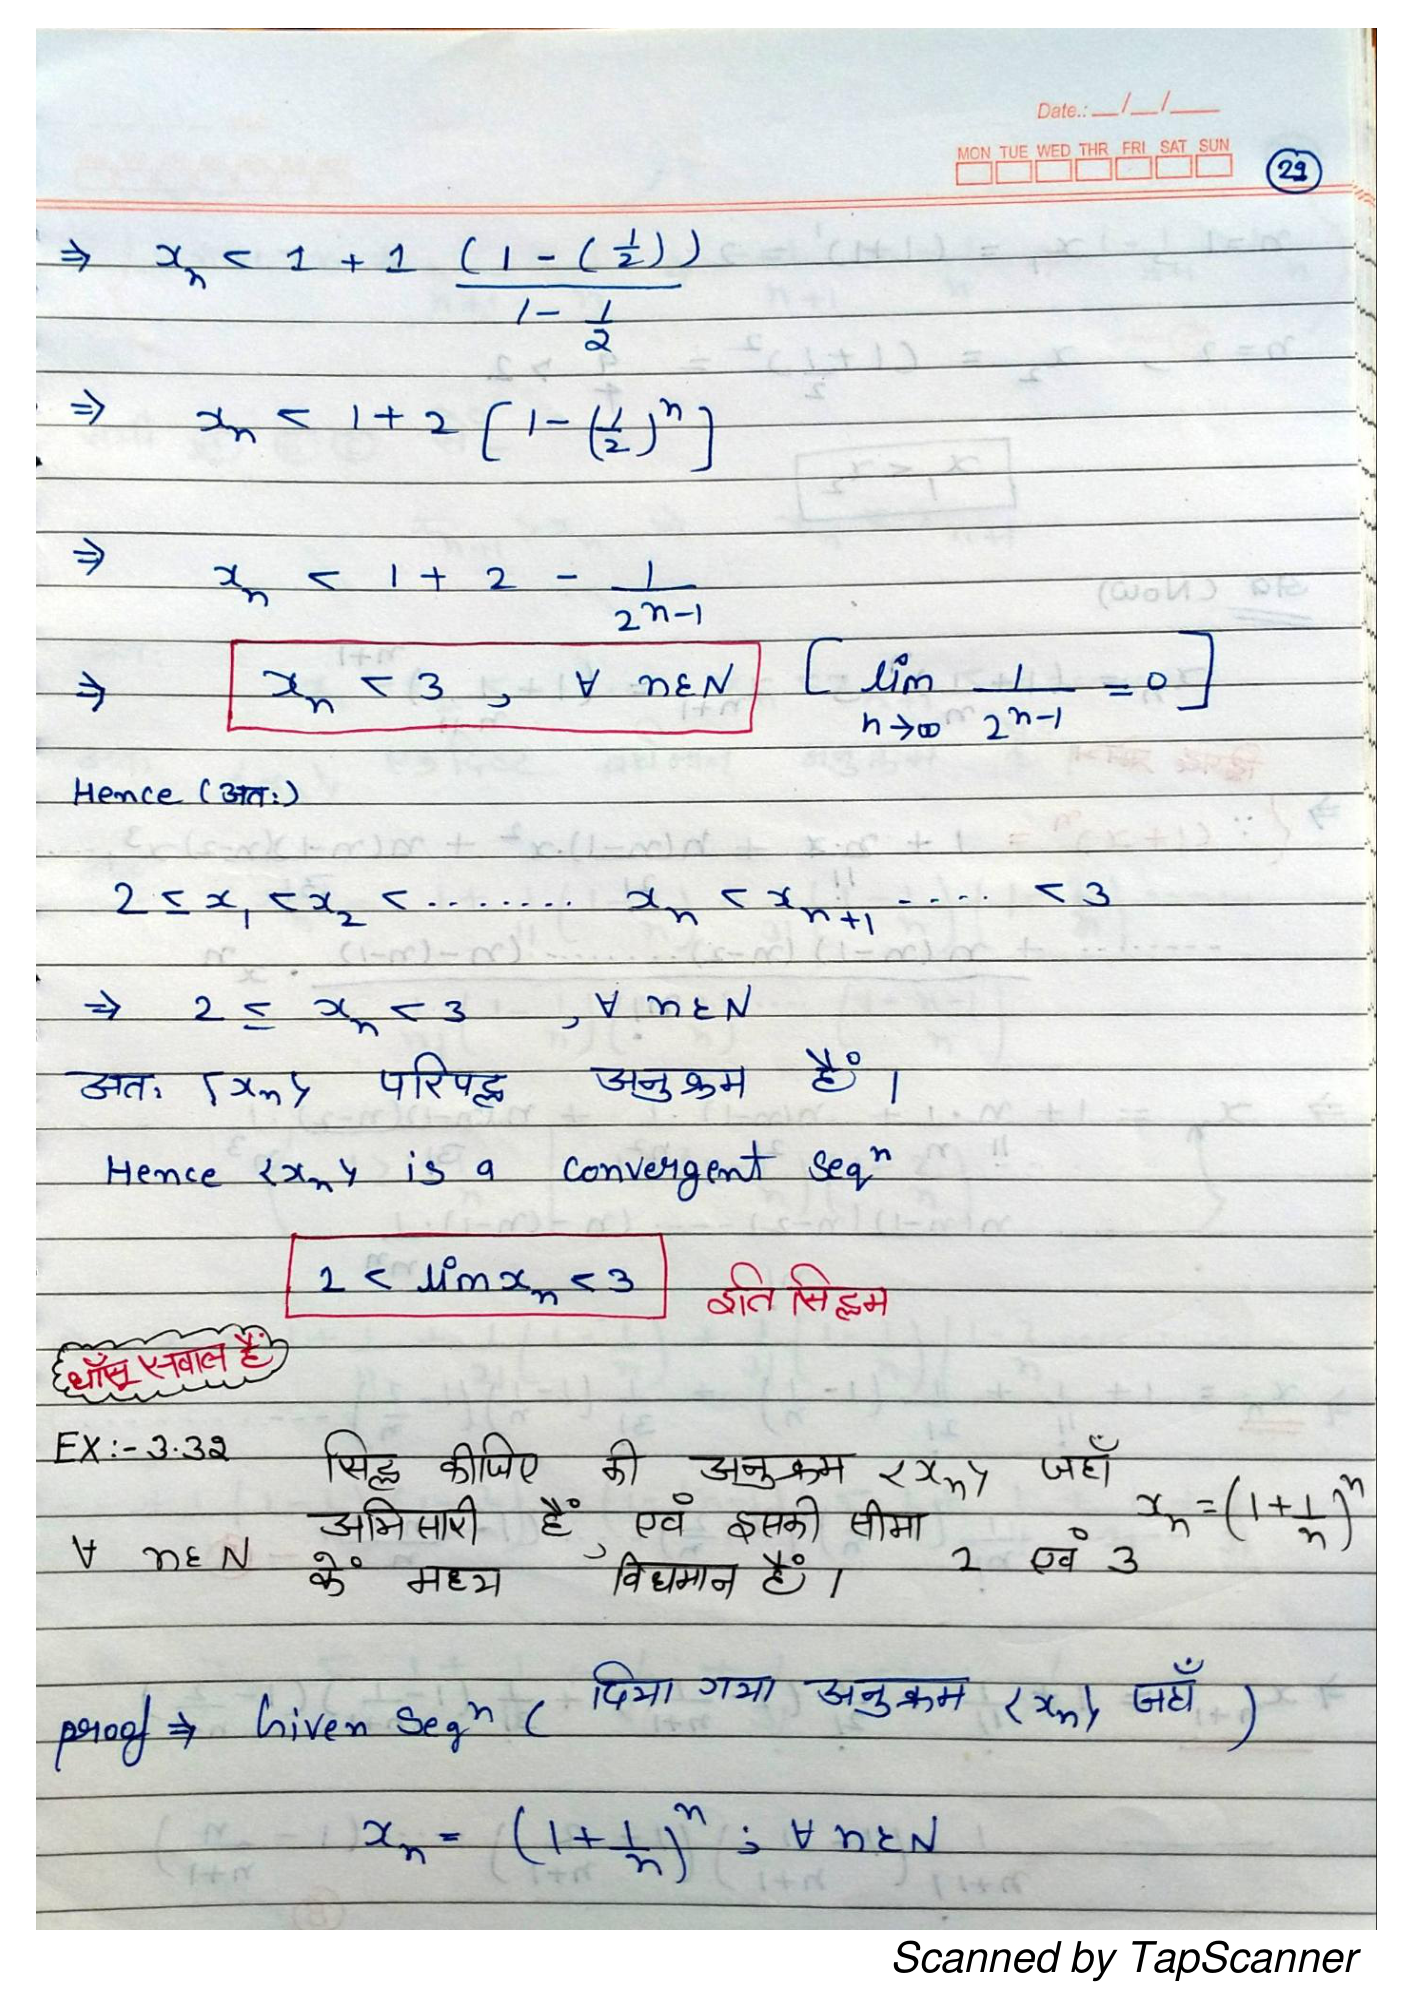 Date.: __/__/___
MON TUE WED THR FRI SAT SUN
29
⇒ xₙ < 1 + 1 (1 - (1/2)) / (1 - 1/2)
⇒ xₙ < 1 + 2 [1 - (1/2)ⁿ]
⇒ xₙ < 1 + 2 - 1/2ⁿ⁻¹
⇒ xₙ < 3 , ∀ n∈N [lim n→∞ 1/2ⁿ⁻¹ = 0]
Hence (अतः)
2 ≤ x₁ < x₂ < ........ xₙ < xₙ₊₁ ..... < 3
⇒ 2 ≤ xₙ < 3 , ∀ n∈N
अतः <xₙ> परिबद्ध अनुक्रम हैं।
Hence <xₙ> is a convergent seqⁿ
2 < lim xₙ < 3 इति सिद्धम
धाँसू सवाल हैं
EX:- 3.32 सिद्ध कीजिए की अनुक्रम <xₙ> जहाँ xₙ = (1+1/n)ⁿ
∀ n∈N अभिसारी हैं, एवं इसकी सीमा 2 एवं 3
के मध्य विद्यमान हैं।
proof ⇒ Given seqⁿ ( दिया गया अनुक्रम <xₙ> जहाँ )
xₙ = (1+1/n)ⁿ ; ∀ n∈N
Scanned by TapScanner